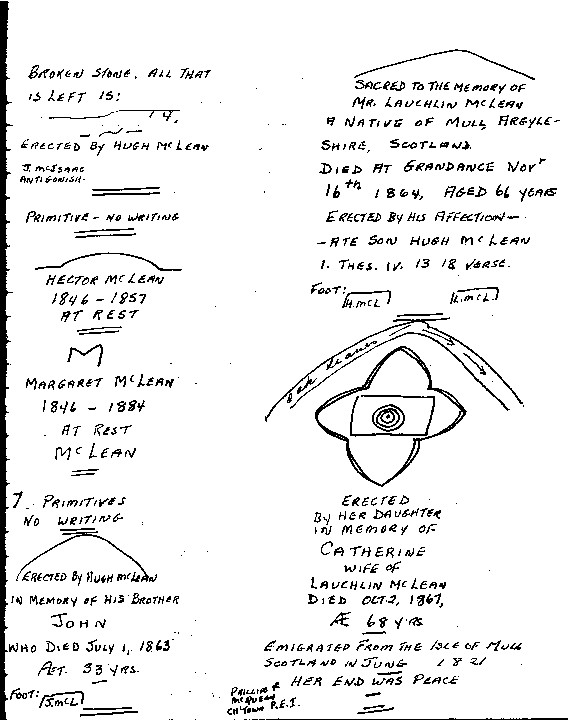 BROKEN STONE, ALL THAT
IS LEFT IS:
14,
ERECTED BY HUGH MCLEAN
J. MCISAAC
ANTIGONISH-
PRIMITIVE - NO WRITING
HECTOR MCLEAN
1846 - 1857
AT REST
M
MARGARET MCLEAN
1846 - 1884
AT REST
MCLEAN
7 PRIMITIVES
NO WRITING
ERECTED BY HUGH MCLEAN
IN MEMORY OF HIS BROTHER
JOHN
WHO DIED JULY 1, 1863
AET. 33 YRS.
FOOT: J.MCL
SACRED TO THE MEMORY OF
MR. LAUCHLIN MCLEAN
A NATIVE OF MULL, ARGYLE-
SHIRE, SCOTLAND.
DIED AT GRANDANCE NOVr
16th 1864, AGED 66 YEARS
ERECTED BY HIS AFFECTION-
-ATE SON HUGH MCLEAN
1. THES. IV. 13 18 VERSE.
FOOT: H.MCL L.MCL
OAK LEAVES
ERECTED
BY HER DAUGHTER
IN MEMORY OF
CATHERINE
WIFE OF
LAUCHLIN MCLEAN
DIED OCT. 2, 1867,
Æ 68 YRS
EMIGRATED FROM THE ISLE OF MULL
SCOTLAND IN JUNE 1821
HER END WAS PEACE
PHILLIPS &
MCQUEEN
CH'TOWN P.E.I.